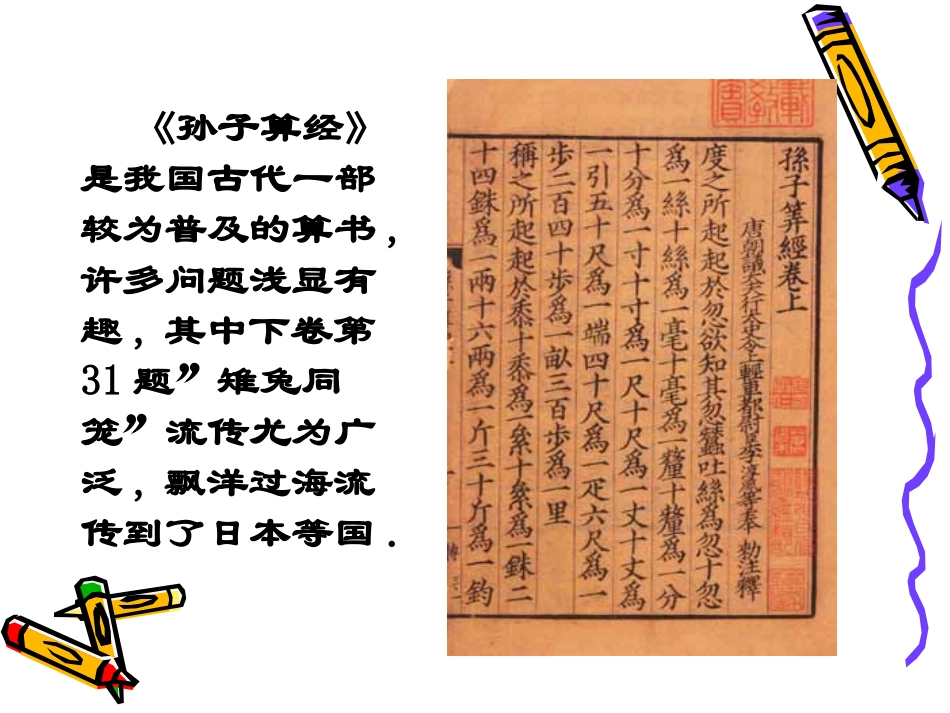 《孙子算经》
是我国古代一部
较为普及的算书,
许多问题浅显有
趣,其中下卷第
31题”雉兔同
笼”流传尤为广
泛,飘洋过海流
传到了日本等国.
孫子筭經卷上
唐朝議大夫行太史令上輕車都尉臣李淳風等奉 勑注釋
度之所起起於忽欲知其忽蠶吐絲為忽十忽
為一絲十絲為一毫十毫為一釐十釐為一分
十分為一寸十寸為一尺十尺為一丈十丈為
一引五十尺為一端四十尺為一疋六尺為一
步二百四十步為一畝三百步為一里
稱之所起起於黍十黍為一絫十絫為一銖二
十四銖為一兩十六兩為一斤三十斤為一鈞